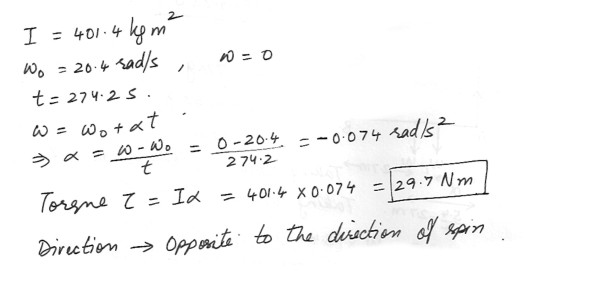 I = 401.4 kg m²
ω₀ = 20.4 rad/s , ω = 0
t = 274.2 s .
ω = ω₀ + αt .
⇒ α = (ω - ω₀)/t = (0 - 20.4)/274.2 = -0.074 rad/s²
Torque τ = Iα = 401.4 × 0.074 = 29.7 Nm
Direction → Opposite to the direction of spin .